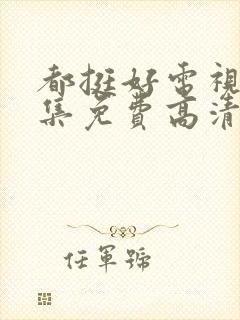 都挺好電視
集免費高清
任軍號